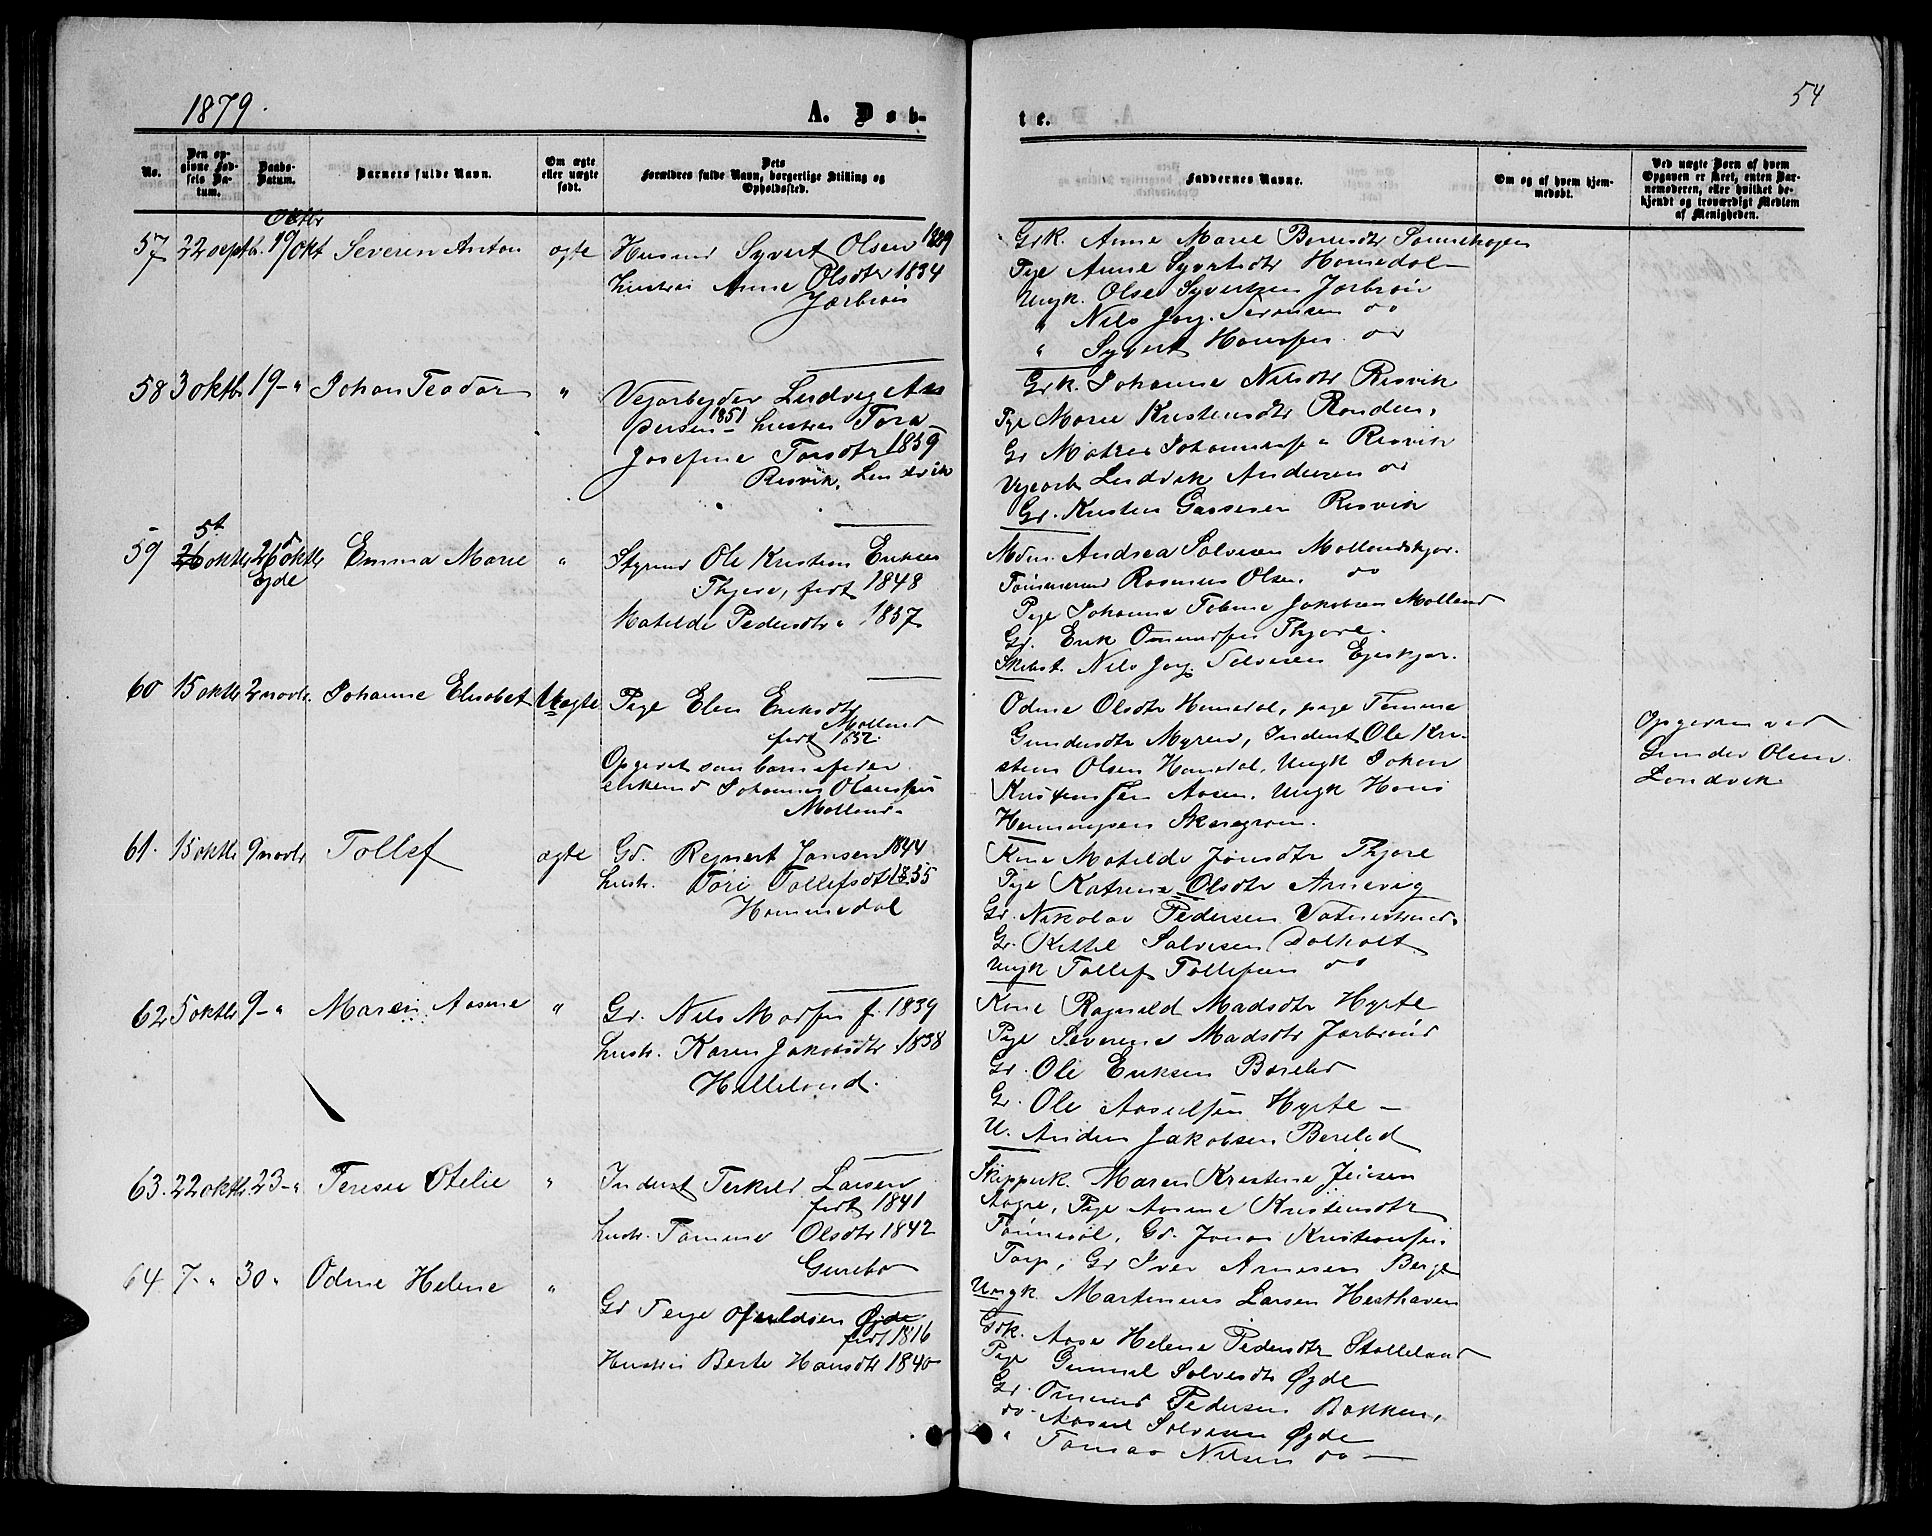 1879.
A. Døb-
te.
54
No.
Den op-
givne Fød-
sels Da-
tum.
Daabs-
Datum.
Barnets fulde Navn.
Om ægte
eller uægte
født.
Dets
Forældres fulde Navn, borgerlige Stilling og
Opholdssted.
Faddernes Navne.
Om og af hvem hjem-
medøbt.
Ved uægte Børn af hvem
Opgaven er skeet, enten Bar-
nemoderen, eller hvilket be-
kjendt og troværdigt Medlem
af Menigheden.
57 22 septb. 19 okt Severin Anton ægte Husmd Syvert Olsen 1839
hustru Anne Olsdtr 1834
Jærbrøn
Grk. Anne Marie Berentsdtr
Pige Anne Syvertsdtr Homedal
Ungk. Olse Syvertsen Jorbrøn
" Nils Jørg. Sørensen do
" Syvert Hansen do
58 3 oktb 19 - " Johan Teodor " Vejarbejder Ludvig An
dersen 1851 hustru Tora
Josefine Torsdtr 1859
Resvik, Landvik
Grk. Johanne Nilsdtr Resvik
Pige Marie Kristensdtr Ronden,
Gr Johannessen Resvik
Vejarb Ludvik Andersen do
Gr. Kristen Gassesen Resvik
59 5t oktbr 26d oktbr Emma Marie " Styrmd Ole Kristian Eriksen
Øjde
Thjore, født 1848
Matilde Pedersdtr " 1857
Mdm. Andrea Salvesen Mollandskjær.
Tømmermd Rasmus Olsen. do
Pige Johanne Tobine Jakobsen Molland
Gr. Erik Ommundsen Thjore.
Skibst. Nils Jørg. Salvesen Egeskjær.
60 15 oktb 2 novb. Johanne Elisabet Uægte Pige Elen Eriksdtr
Molland
født 1852.
Opgivet som barnefader
enkemd Johannes Olausen
Molland.
Odine Olsdtr Homedal, pige Tomine
Gundersdtr Myren, Inderst Ole Kri-
stian Olsen Homedal, Ungk Johan
Kristensen Aasen, Ungk Hans
Henningsen Skaregrøm.
Opgiven ved
Gunder Olsen
Landvik
61. 15 oktb 9 novb. Tollef ægte Gd. Regnert Jansen 1844
hustr. Tori Tollefsdtr 1835
Hommedal
Kone Matilde Jonsdtr Thjore
Pige Katrine Olsdtr Arnevig
Gr. Nikolai Pedersen Vatnestrand.
Gr. Kittil Salvesen Dalholt
Ungk Tollef Tollefsen do
62 5 oktb 9 - " Maren Aasine " Gr. Nils Madsen f. 1839
hustr. Karen Jakobsdtr 1838
Hilleland.
Kone Ragnild Madsdtr Hyrte
Pige Severine Madsdtr Jorbrønd
Gr. Ole Eriksen Bereled
Gr. Ole Aasulsen Hyrte -
U. Anders Jakobsen Bereled
63. 22 oktb. 23 - " Terese Otelie " Inderst Terkild Larsen
født 1841
hustr. Tomine Olsdtr 1842
Gurebo
Skipperk. Maren Kristine Jensen
Aagre, Pige Aasine Kristensdtr
Tønnesøl, Gd. Jonas Kristiansen
Torp, Gr Iver Arnesen Berge
Ungk. Martinius Larsen Hesthaven
64 7 - " 30 " Odine Helene " Gd Terje Øjde
født 1816
Hustru Berte Hansdtr 1840
Grk. Aase Helene Pedersdtr Stolleland
Pige Gunnil Salvesdtr Øjde
Gr. Ommund Pedersen Bakken,
do Aasul Salvesen Øjde
" Tomas Nilsen do -